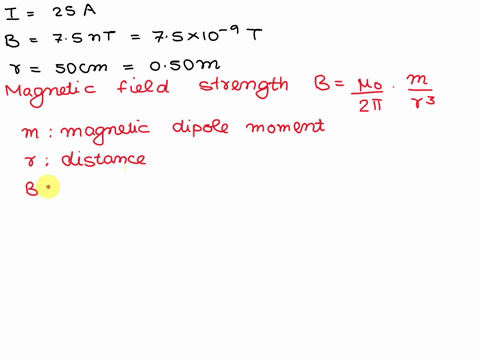 I = 25 A
B = 7.5 nT = 7.5 × 10⁻⁹ T
r = 50cm = 0.50m
Magnetic field strength B = μ₀/2π · m/r³
m : magnetic dipole moment
r : distance
B